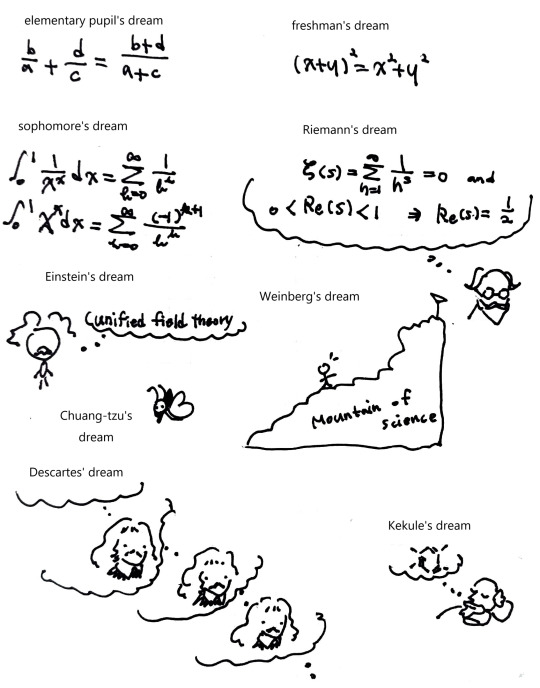 elementary pupil's dream
b/a + d/c = b+d/a+c
freshman's dream
(x+y)² = x²+y²
sophomore's dream
∫₀¹ 1/xˣ dx = ∑_{n=0}^{∞} 1/nⁿ
∫₀¹ xˣ dx = ∑_{n=0}^{∞} (-1)ⁿ⁺¹/nⁿ
Riemann's dream
ζ(s) = ∑_{n=1}^{∞} 1/nˢ = 0 and
0 < Re(s) < 1 ⇒ Re(s) = 1/2
Einstein's dream
unified field theory
Weinberg's dream
Mountain of
science
Chuang-tzu's
dream
Descartes' dream
Kekule's dream